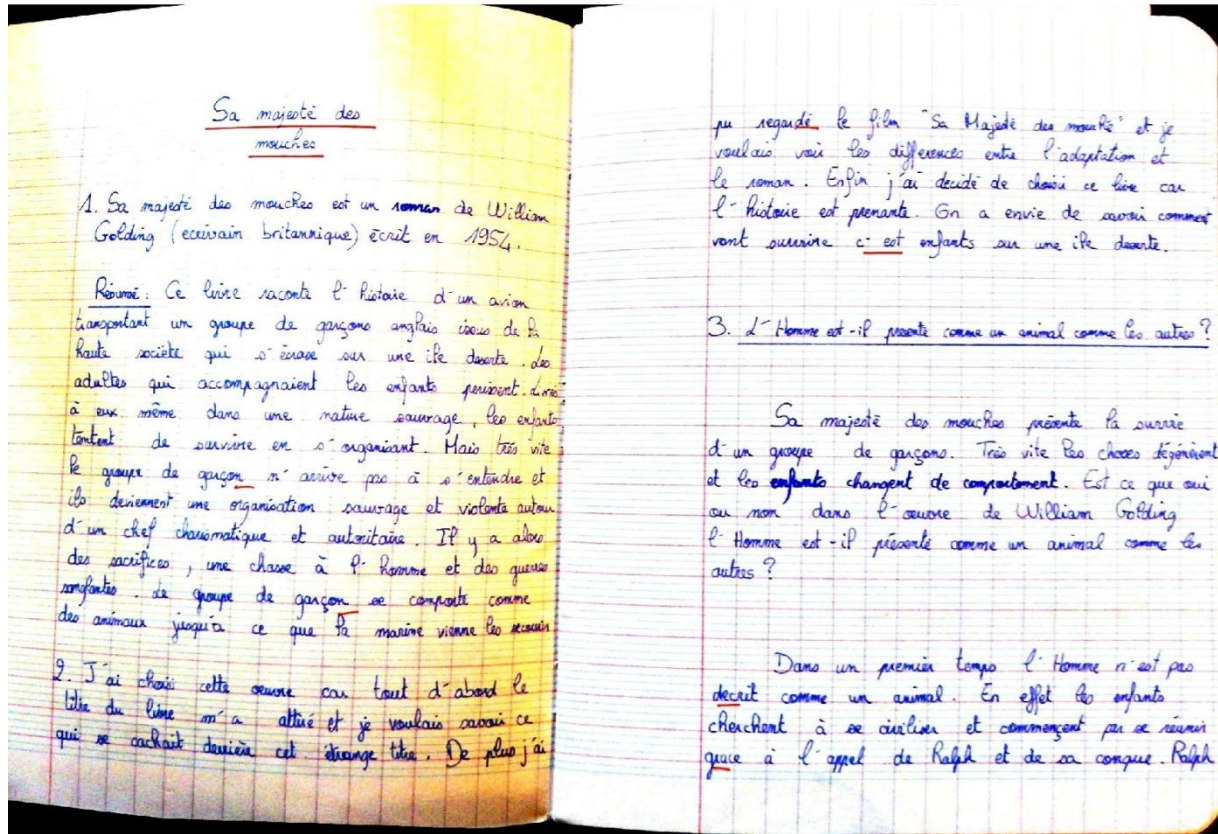 Sa majesté des
mouches
1. Sa majesté des mouches est un roman de William
Golding (ecrivain britannique) écrit en 1954.
Résumé : Ce livre raconte l'histoire d'un avion
transportant un groupe de garçons anglais issus de la
haute société qui s'écrase sur une ile deserte. Les
adultes qui accompagnaient les enfants perissent. Livrés
à eux même dans une nature sauvage, les enfants
tentent de survivre en s'organisant. Mais très vite
le groupe de garçon n'arrive pas à s'entendre et
ils deviennent une organisation sauvage et violente autour
d'un chef charismatique et autoritaire. Il y a alors
des sacrifices, une chasse à l'homme et des guerres
sanglantes. Le groupe de garçon se comporte comme
des animaux jusqu'à ce que la marine vienne les secourir
2. J'ai choisi cette oeuvre car tout d'abord le
titre du livre m'a attiré et je voulais savoir ce
qui se cachait derrière cet étrange titre. De plus j'ai
pu regardé le film "Sa Majesté des mouches" et je
voulais voir les differences entre l'adaptation et
le roman. Enfin j'ai decidé de choisir ce livre car
l'histoire est prenante. On a envie de savoir comment
vont survivre c'est enfants sur une ile deserte.
3. L'Homme est-il presenté comme un animal comme les autres ?
Sa majesté des mouches présente la survie
d'un groupe de garçons. Très vite les choses dégénèrent
et les enfants changent de comportement. Est ce que oui
ou non dans l'oeuvre de William Golding
l'Homme est-il présenté comme un animal comme les
autres ?
Dans un premier temps l'Homme n'est pas
decrit comme un animal. En effet les enfants
cherchent à se civiliser et commençent par se réunir
grace à l'appel de Ralph et de sa conque. Ralph